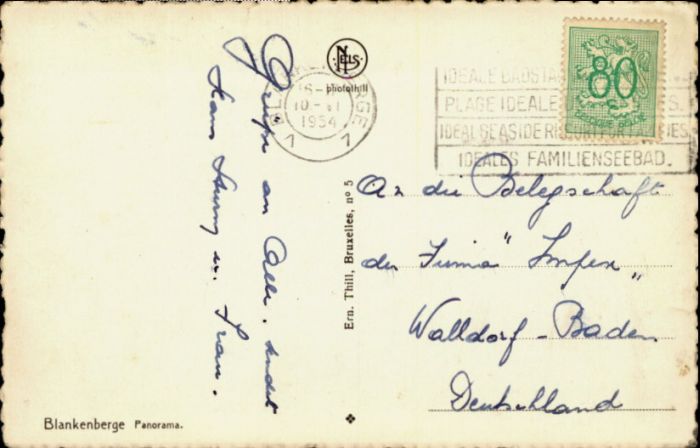 Grüße an Alle, sendet
Hans Sturm u. Frau.
NELS
photothill
BLANKENBERGE
10-VI
1954
1 1
IDEALE BADSTA
PLAGE IDEALE
IDEAL SEASIDE RESORT FOR FAMILIES
IDEALES FAMILIENSEEBAD.
80
c
BELGIQUE BELGIE
An die Belegschaft
der Firma "Impex"
Walldorf-Baden
Deutschland
Ern. Thill, Bruxelles, nº 5
Blankenberge Panorama.